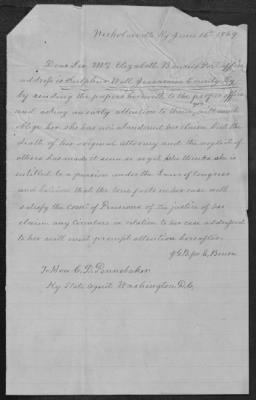 Nicholasville Ky June 16th 1869
Dear Sir Mrs Elizabeth Post office
address is Sulphur Well Jessamine County Ky
by sending the papers herewith to the proper office
and asking early attention to them, you will much
oblige her she has not abandoned her claim but the
death of her original attorney and the neglect of
others has made it seem so as yet. She thinks she is
entitled to a pension under the laws of congress
and believes that the true facts in her case will
satisfy the Comr of Pensions of the justice of her
claim any circulars in relation to her case addressed
to her will meet prompt attention hereafter.
for E,
To Hon C. D. Pennebaker
Ky State Agent. Washington D.C.